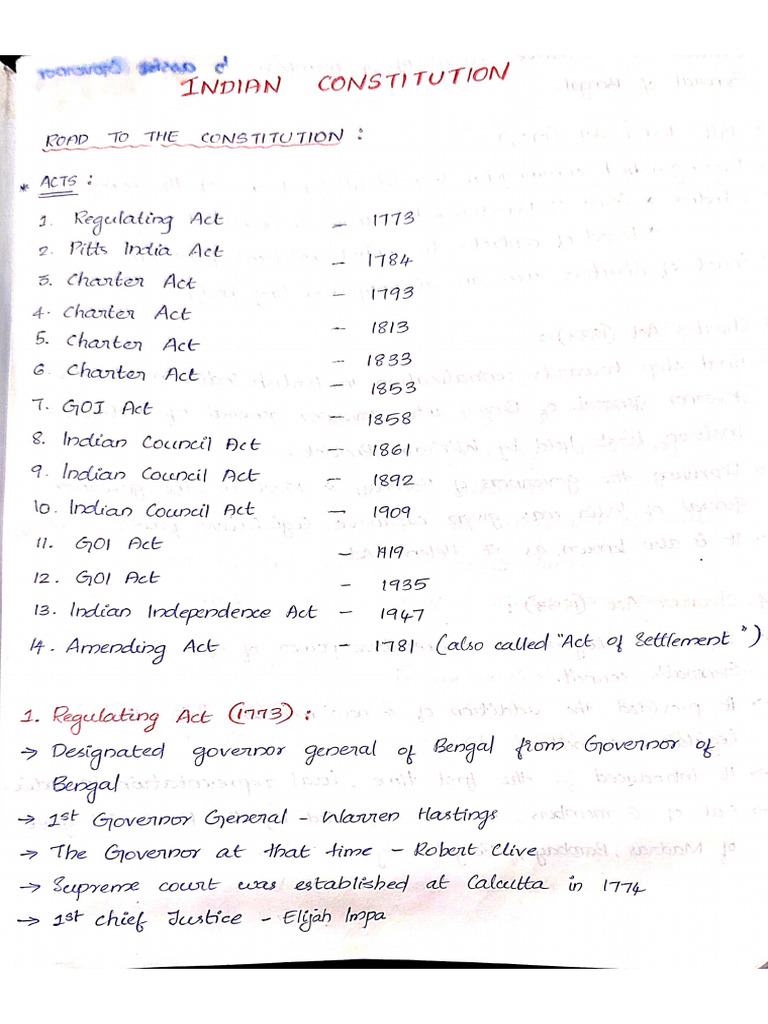 INDIAN CONSTITUTION
ROAD TO THE CONSTITUTION :
* ACTS :
1. Regulating Act - 1773
2. Pitts India Act - 1784
3. Charter Act - 1793
4. Charter Act - 1813
5. Charter Act - 1833
6. Charter Act - 1853
7. GOI Act - 1858
8. Indian Council Act - 1861
9. Indian Council Act - 1892
10. Indian Council Act - 1909
11. GOI Act - 1919
12. GOI Act - 1935
13. Indian Independence Act - 1947
14. Amending Act - 1781 (also called "Act of Settlement")
1. Regulating Act (1773) :
→ Designated governor general of Bengal from Governor of
Bengal
→ 1st Governor General - Warren Hastings
→ The Governor at that time - Robert Clive
→ Supreme court was established at Calcutta in 1774
→ 1st chief Justice - Elijah Impa